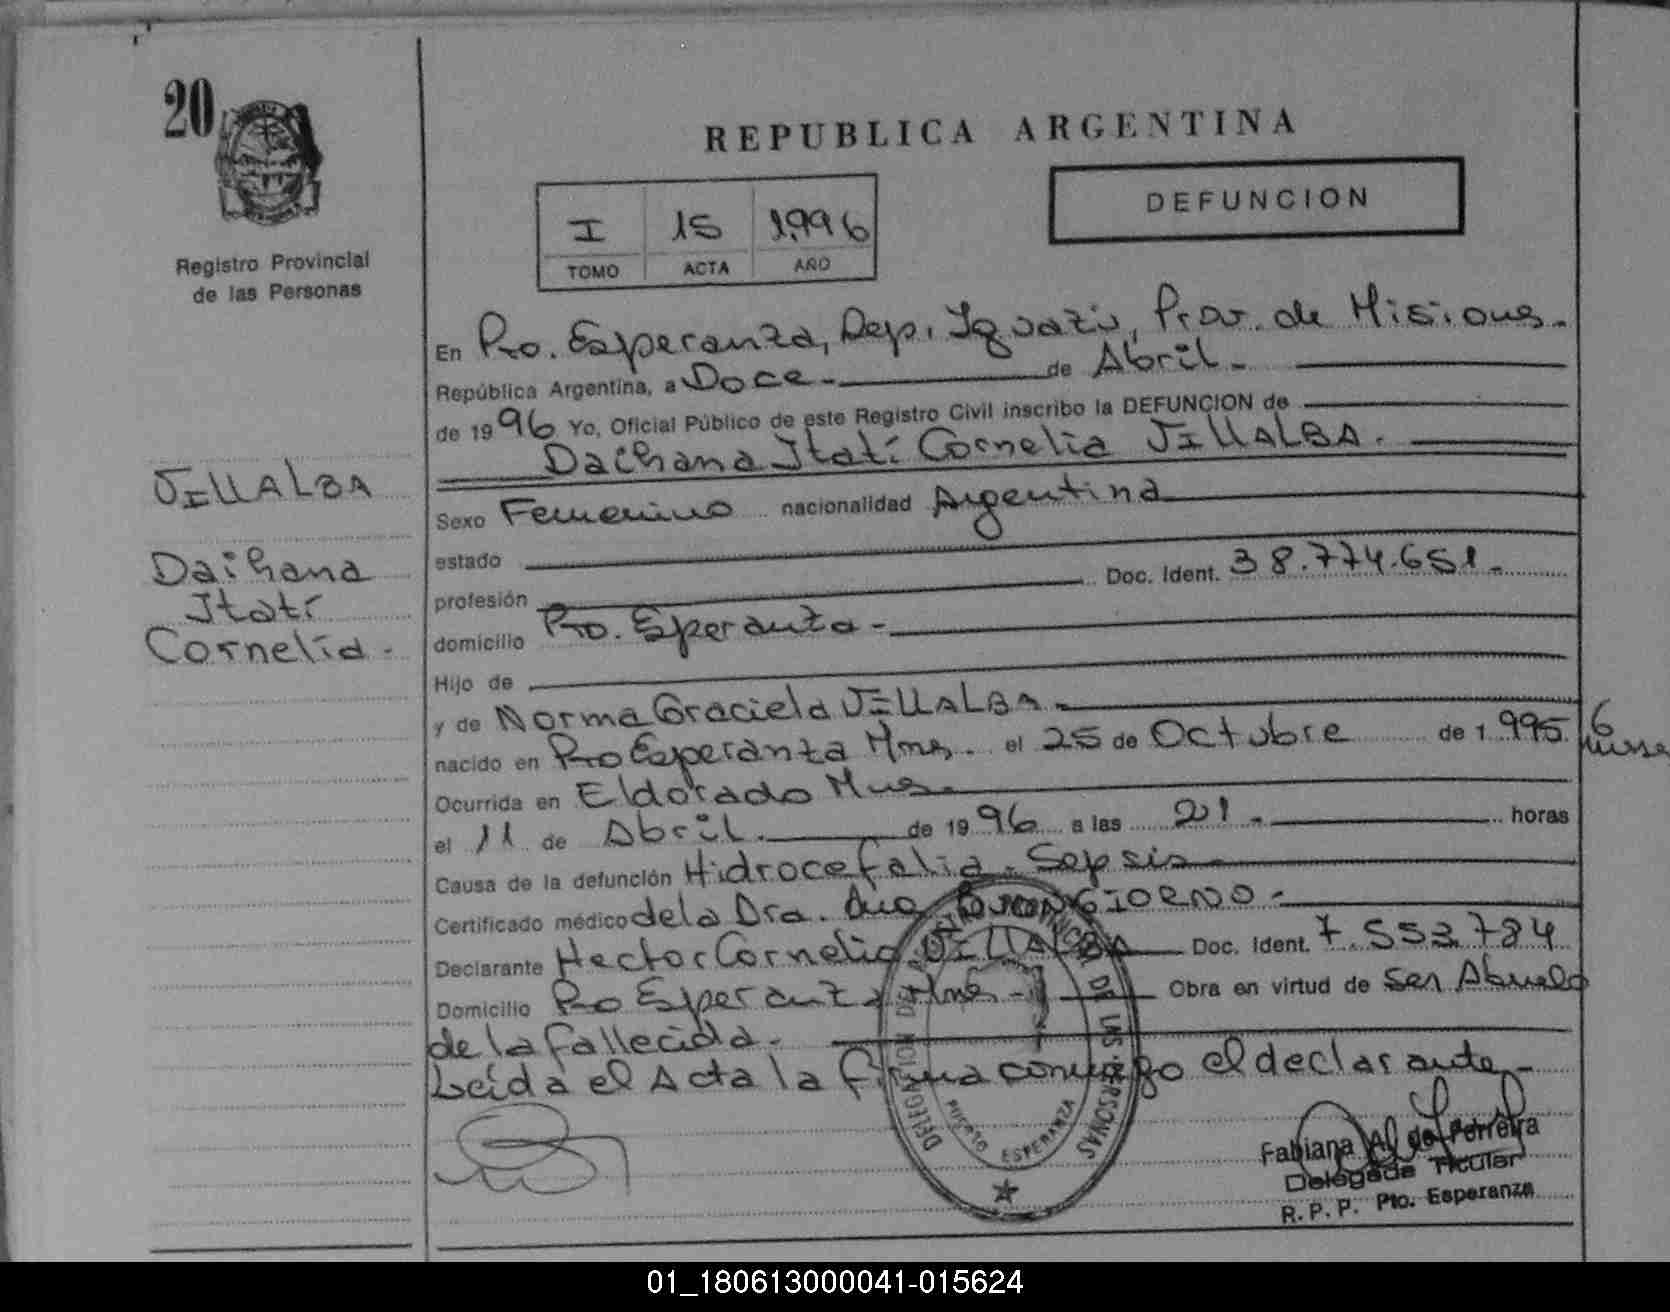 20
REPUBLICA ARGENTINA
DEFUNCION
I 15 1.996
TOMO ACTA AÑO
Registro Provincial
de las Personas
En Pto. Esperanza, Dep. Iguazú, Prov. de Misiones.-
República Argentina, a Doce.- de Abril.-
de 1996 Yo, Oficial Público de este Registro Civil inscribo la DEFUNCION de
Daihana Itatí Cornelia VILLALBA.
VILLALBA
Daihana
Itatí
Cornelia.-
Sexo Femenino nacionalidad Argentina
estado
profesión Doc. Ident. 38.774.651.-
domicilio Pto. Esperanza.-
Hijo de
y de Norma Graciela VILLALBA.-
nacido en Pto Esperanza Mnes. el 25 de Octubre de 1.995.
Ocurrida en Eldorado Mnes.
el 11 de Abril. de 1996 a las 21.- horas
Causa de la defunción Hidrocefalia. Sepsis.-
Certificado médico de la Dra. Ana BUONGIORNO.-
Declarante Hector Cornelio VILLALBA Doc. Ident. 7.553.784
Domicilio Pto Esperanza Mnes.- Obra en virtud de Ser Abuelo
de la fallecida.-
Leída el Acta la firma conmigo el declarante.-
DELEGACION DEL REGISTRO PROVINCIAL DE LAS PERSONAS
PUERTO ESPERANZA
Fabiana A. de Ferreira
Delegada Titular
R. P. P. Pto. Esperanza
01_180613000041-015624